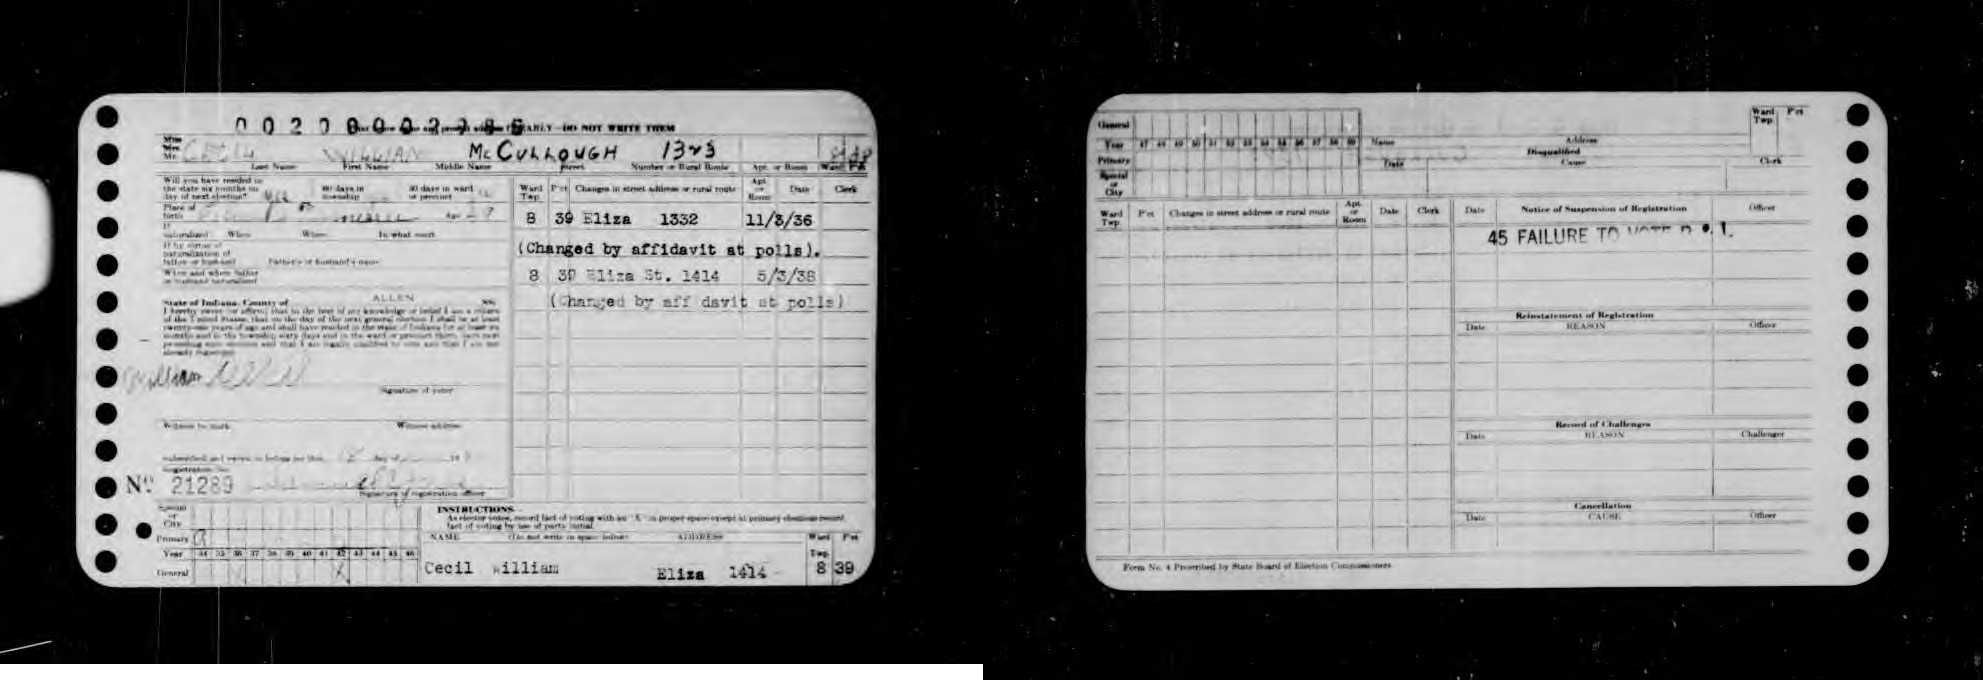 EARLY—DO NOT WRITE THEM
Miss
Mrs.
Mr. CECIL WILLIAM McCULLOUGH 1323
Last Name First Name Middle Name Street Number or Rural Route Apt. or Room Ward Pct.
Will you have resided in
the state six months on 60 days in 30 days in ward
day of next election? Yes township or precinct
Place of
birth Age
If
naturalized When Where In what court
If by virtue of
naturalization of
father or husband Father's or husband's name
When and where father
or husband naturalized
State of Indiana, County of ALLEN SS:
I hereby swear (or affirm) that to the best of my knowledge or belief I am a citizen
of the United States, that on the day of the next general election I shall be at least
twenty-one years of age and shall have resided in the state of Indiana for at least six
months and in the township sixty days and in the ward or precinct thirty days next
preceding such election and that I am legally qualified to vote and that I am not
already registered.
William Cecil
Signature of voter
Witness to mark Witness address
Subscribed and sworn to before me this day of 19
Registration No.
No. 21289
Signature of registration officer
Ward Twp. P'ct Changes in street address or rural route Apt. or Room Date Clerk
8 39 Eliza 1332 11/3/36
(Changed by affidavit at polls).
8 39 Eliza St. 1414 5/3/38
(Changed by aff davit at polls)
Special
or
City
Primary R
Year 34 35 36 37 38 39 40 41 42 43 44 45 46
General X
INSTRUCTIONS
As elector votes, record fact of voting with an "X" in proper space except at primary elections record
fact of voting by use of party initial.
NAME (Do not write in space below) ADDRESS Ward Twp. P'ct
Cecil William Eliza 1414 8 39
General
Year 47 48 49 50 51 52 53 54 55 56 57 58 59
Primary
Special
or
City
Name Address Ward Twp. P'ct
Disqualified
Date Cause Clerk
Ward Twp. P'ct Changes in street address or rural route Apt. or Room Date Clerk
Date Notice of Suspension of Registration Officer
45 FAILURE TO VOTE
Reinstatement of Registration
Date REASON Officer
Record of Challenges
Date REASON Challenger
Cancellation
Date CAUSE Officer
Form No. 4 Prescribed by State Board of Election Commissioners